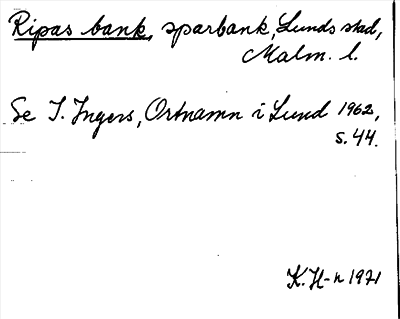 Ripas bank, sparbank, Lunds stad,
Malm. l.
Se I. Ingers, Ortnamn i Lund 1962,
s. 44.
K. H-n 1971